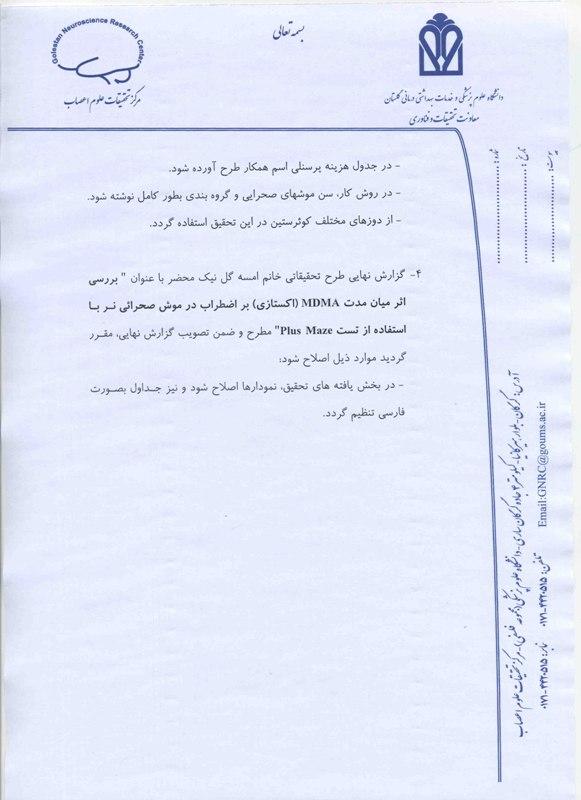 بسمه تعالی
Golestan Neuroscience Research Center
مرکز تحقیقات علوم اعصاب
دانشگاه علوم پزشکی و خدمات بهداشتی درمانی گلستان
معاونت تحقیقات و فناوری
شماره:
تاریخ:
پیوست:
- در جدول هزینه پرسنلی اسم همکار طرح آورده شود.
- در روش کار، سن موشهای صحرایی و گروه بندی بطور کامل نوشته شود.
- از دوزهای مختلف کوئرستین در این تحقیق استفاده گردد.
۴- گزارش نهایی طرح تحقیقاتی خانم امسه گل نیک محضر با عنوان " بررسی
اثر میان مدت MDMA (اکستازی) بر اضطراب در موش صحرائی نر با
استفاده از تست Plus Maze" مطرح و ضمن تصویب گزارش نهایی، مقرر
گردید موارد ذیل اصلاح شود:
- در بخش یافته های تحقیق، نمودارها اصلاح شود و نیز جداول بصورت
فارسی تنظیم گردد.
آدرس: گرگان- بلوار هیرکانیا- کیلومتر ۴ جاده گرگان ساری- دانشگاه علوم پزشکی (مجموعه فلسفی)- مرکز تحقیقات علوم اعصاب
تلفن: ۰۱۷۱-۴۴۲۰۵۱۵ نمابر: ۰۱۷۱-۴۴۲۰۵۱۵
Email:GNRC@goums.ac.ir